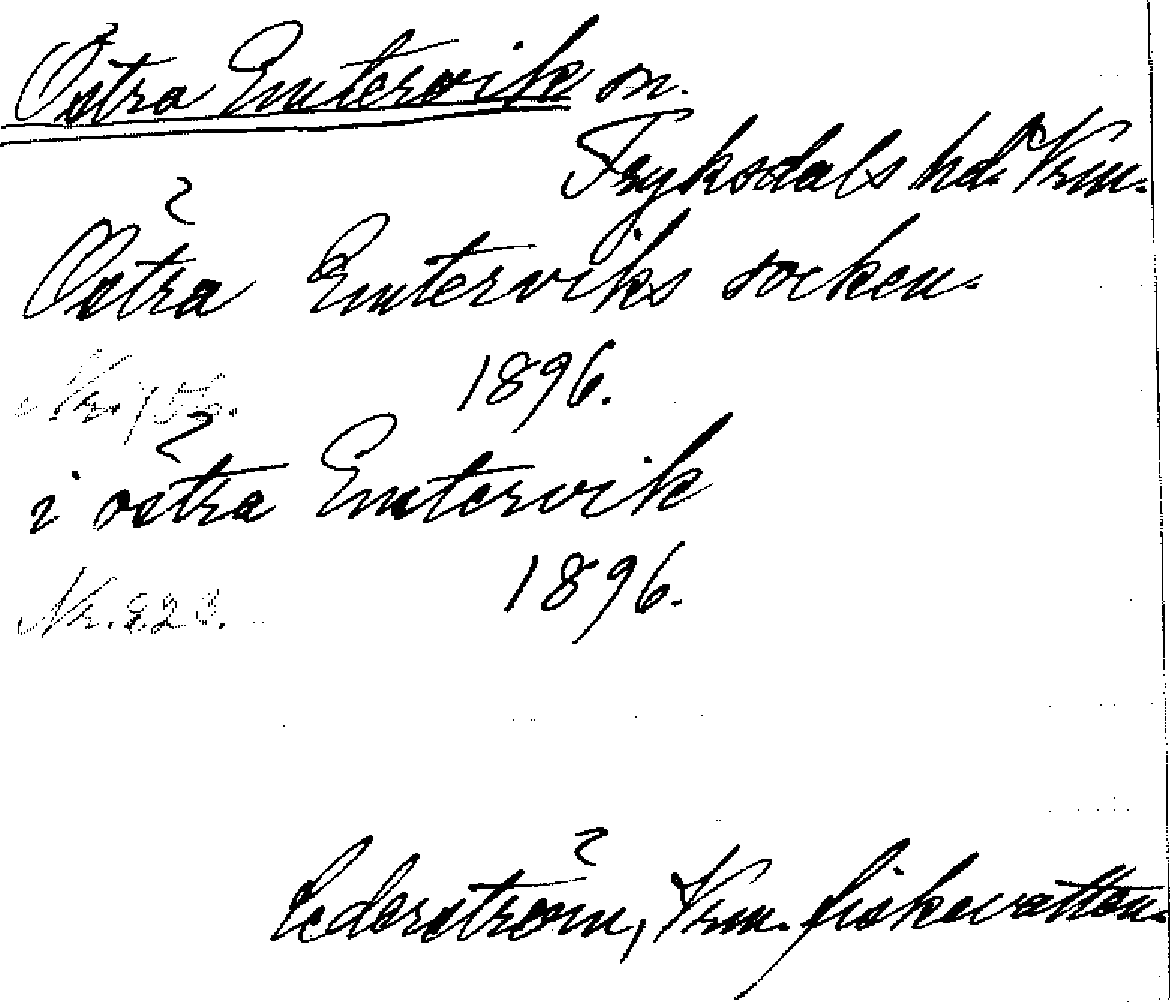 Östra Emtervik sn.
Fryksdals hd. Vrm.
Östra Emterviks socken.
Nr. 1896.
i östra Emtervik
1896.
Nr. 223.
Cederström, Vrm. fiskevatten.